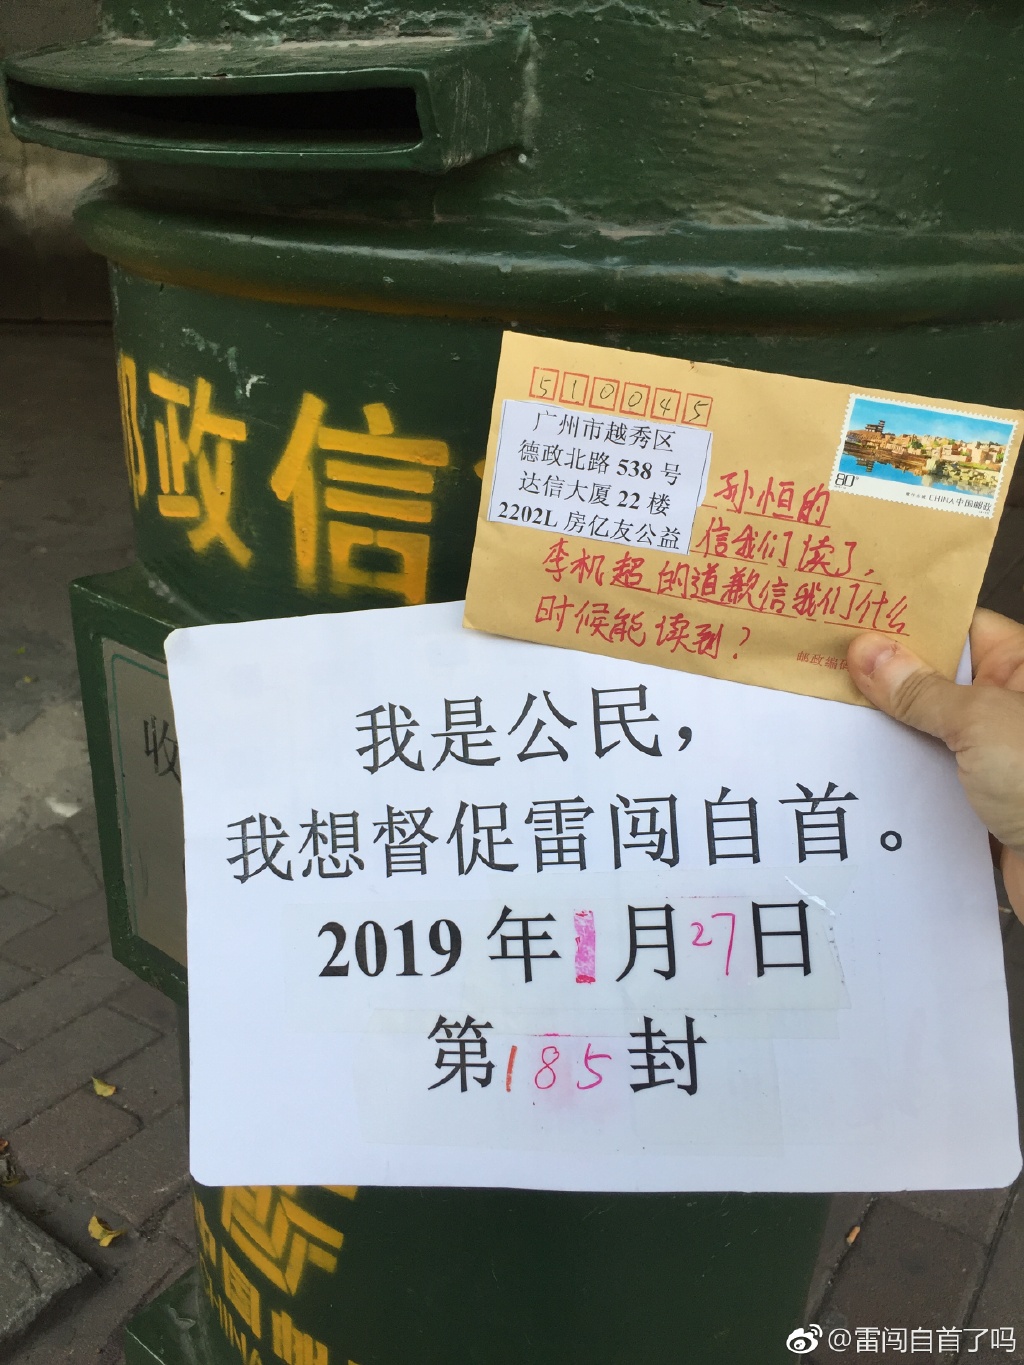 邮政信
510045
广州市越秀区
德政北路 538 号
达信大厦 22 楼
2202L 房亿友公益
80分
CHINA 中国邮政
孙恒的
信我们读了,
李机超的道歉信我们什么
时候能读到?
邮政编码
收
我是公民,
我想督促雷闯自首。
2019 年 1 月 27 日
第 185 封
中国邮
CHINA
@雷闯自首了吗